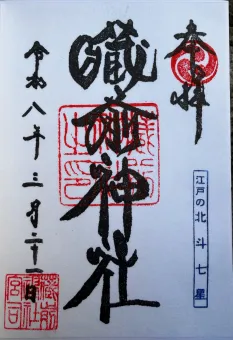 奉拝
江戸の北斗七星
藏前神社
令和八年三月二十一日